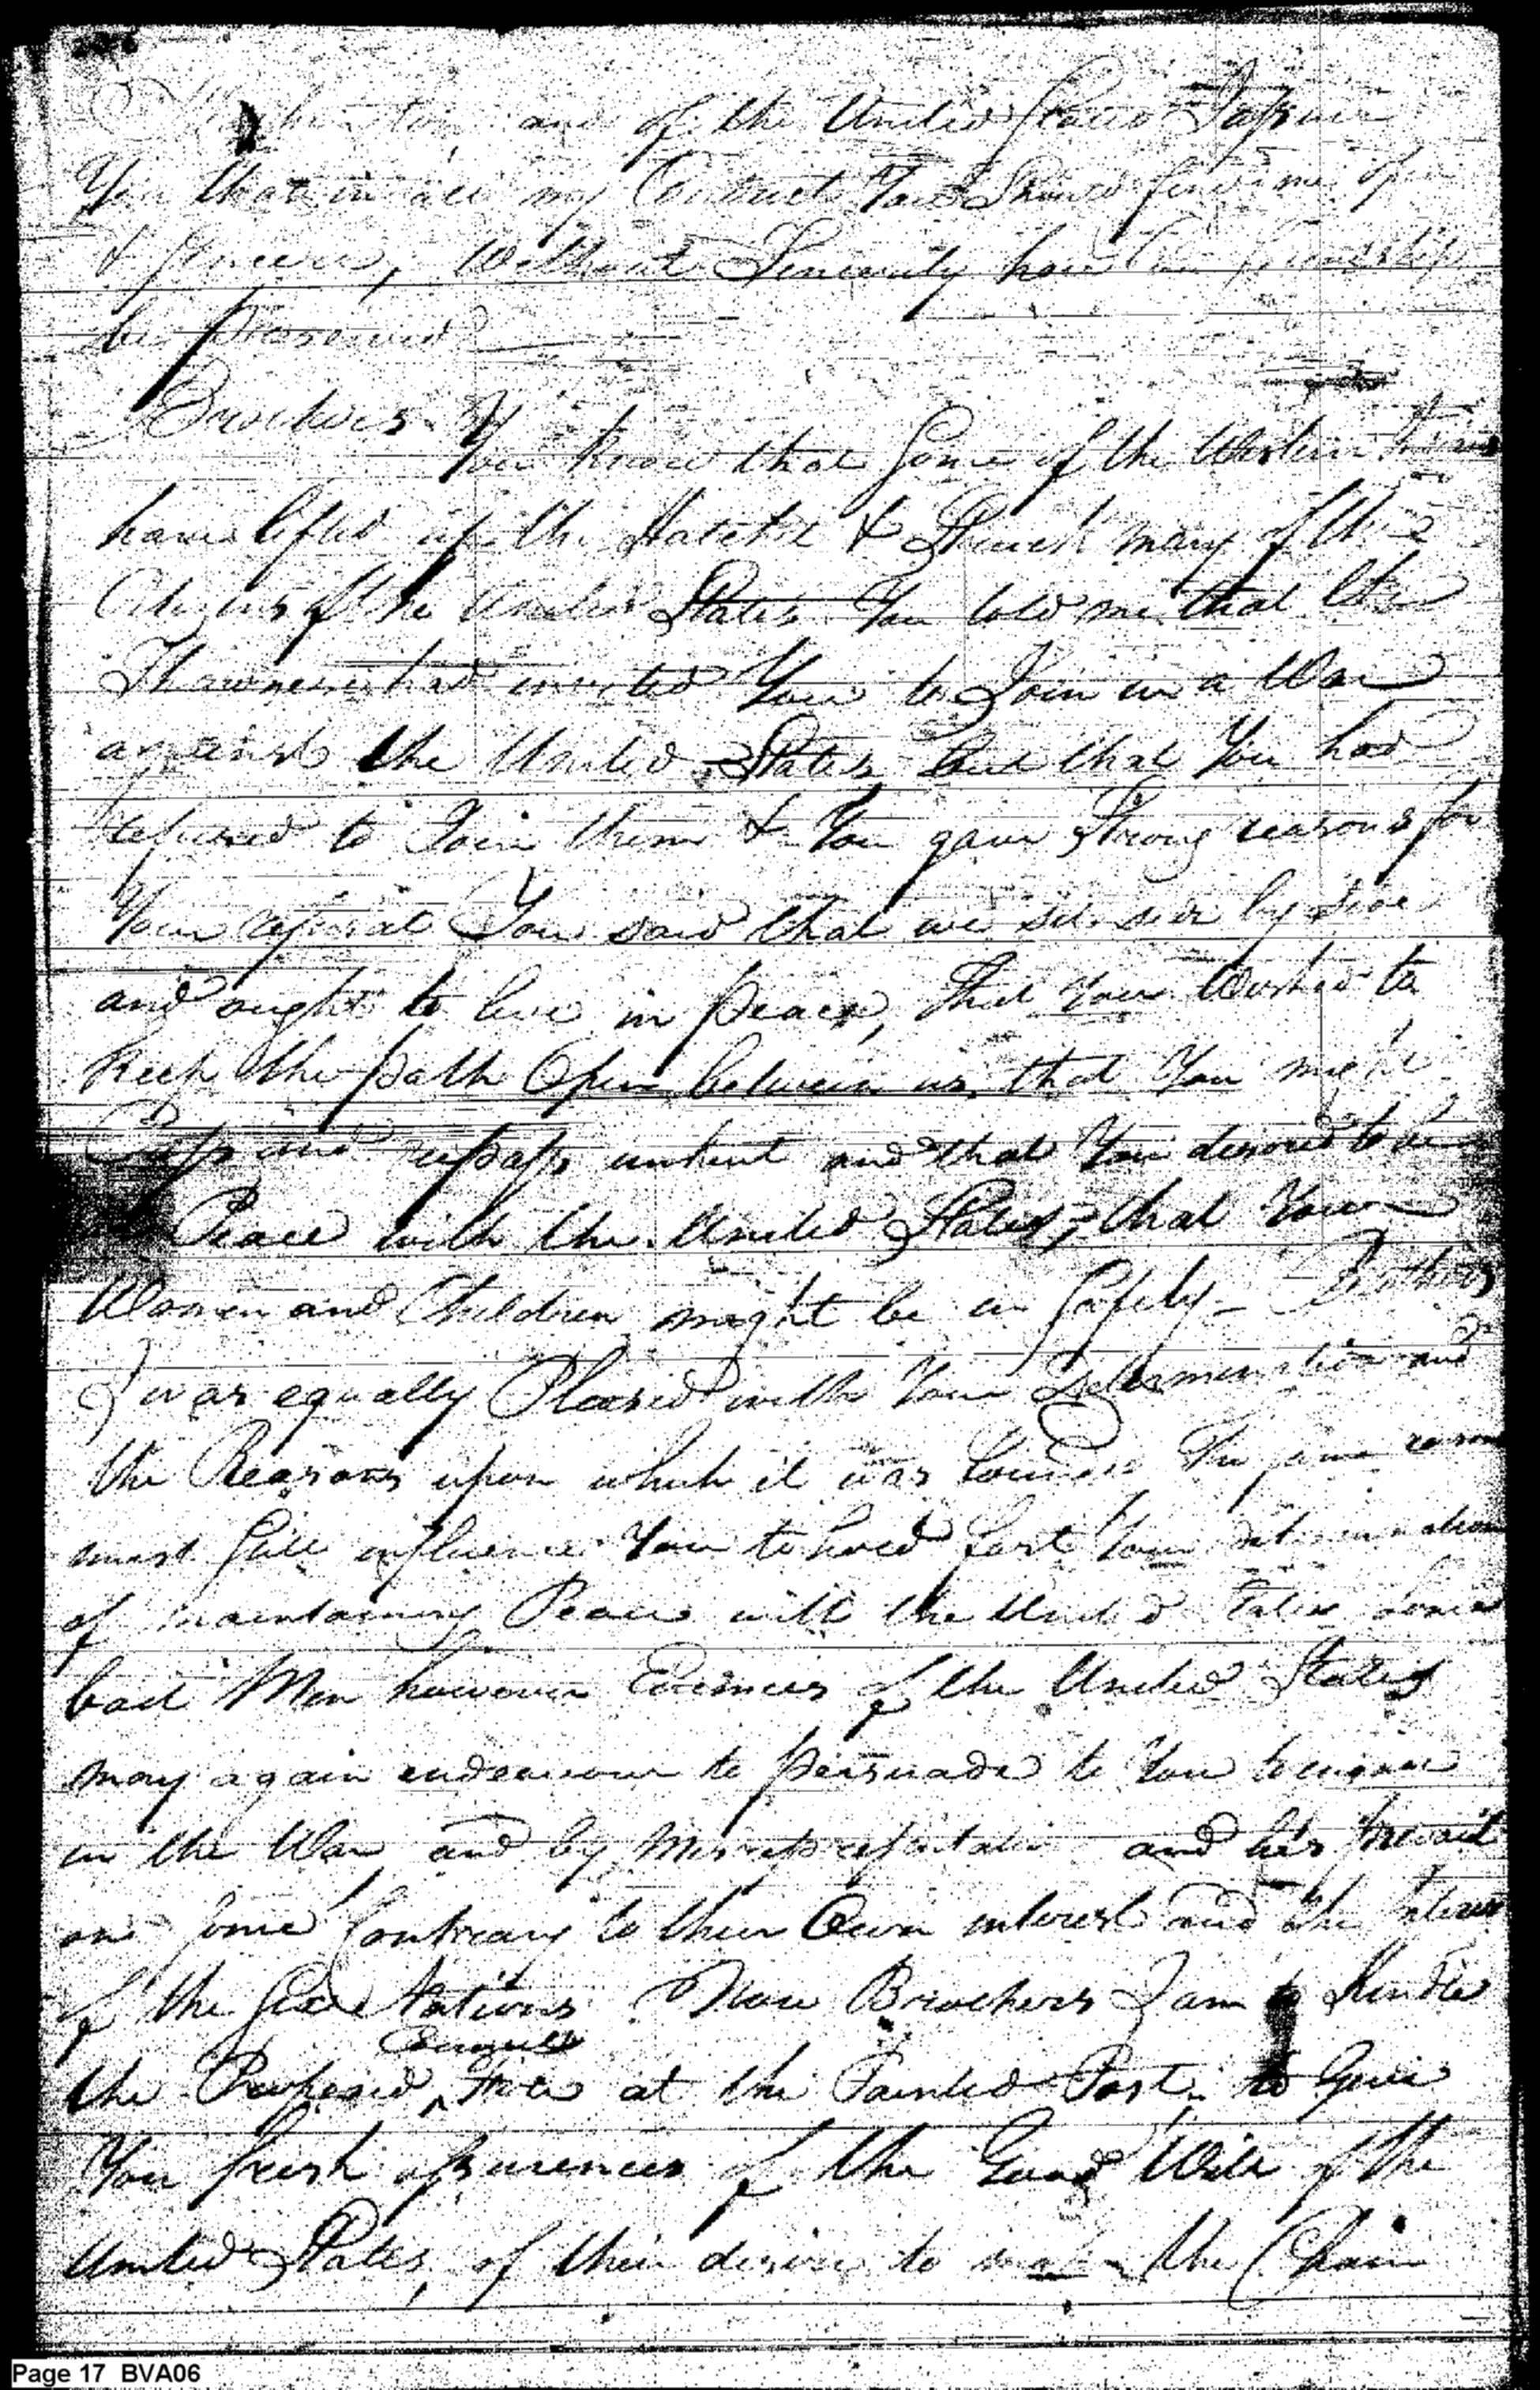 and of the United States Assure
You that in all my Conduct You Should find me Open
& Sincere, Without Sincerity how Can friendship
be preserved
Brothers
You know that Some of the Western
have lifted up the Hatchet & Struck many of the
Citizens of the United States You told me that
Shawnees had invited You to Join in a War
against the United States but that You had
refused to Join them & You gave Strong reasons for
Your refusal You said that we sit side by side
and ought to live in peace, that You Wished to
Keep the path Open between us, that You might
pass and repass and that You desired to be
Peace with the United States, that Your
Women and Children might be in Safety - Brothers
I was equally Pleased with Your Determination and
the Reasons upon which it was founded The same reasons
must Still influence You to hold fast Your determination
of maintaining Peace with the United States Some
bad Men however Enemies of the United States
may again endeavour to persuade to You to engage
in the War and by Misrepresentation and lies prevail
on Some Contrary to their Own interest and the Interest
of the Nations Now Brothers I am to Kindle
the Proposed Fire at the Painted Post to Give
Council
You fresh assurences of the Good Will of the
United States, of their desire to the Chain
Page 17 BVA06